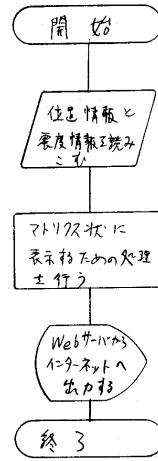 開始
位置情報と
震度情報を読み
こむ
マトリクス状に
表示するための処理
を行う
Webサーバから
インターネットへ
出力する
終了